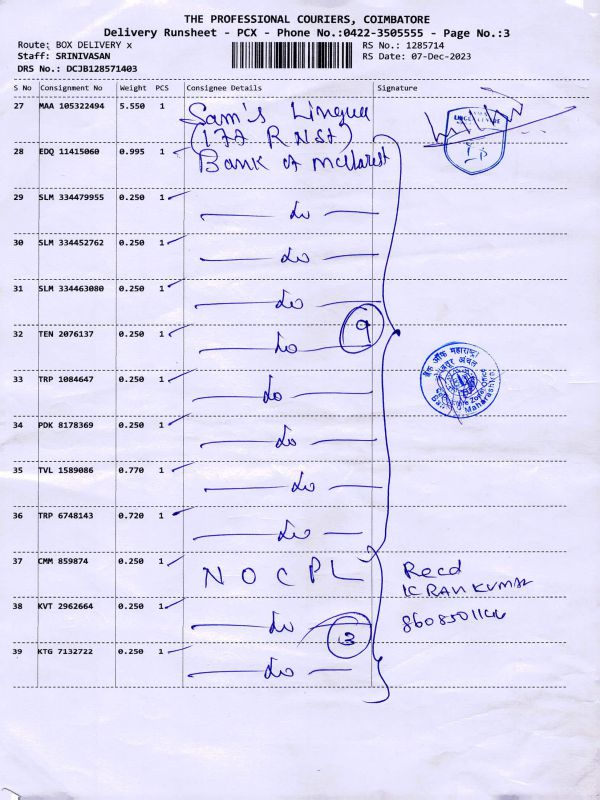 THE PROFESSIONAL COURIERS, COIMBATORE
Delivery Runsheet - PCX - Phone No.:0422-3505555 - Page No.:3
Route: BOX DELIVERY x
RS No.: 1285714
Staff: SRINIVASAN
RS Date: 07-Dec-2023
DRS No.: DCJB128571403
S No Consignment No Weight PCS Consignee Details Signature
27 MAA 105322494 5.550 1 Sam's Lingua
(177 RNST)
28 EDQ 11415060 0.995 1 Bank of
29 SLM 334479955 0.250 1 Do
30 SLM 334452762 0.250 1 Do
31 SLM 334463080 0.250 1 Do
9
32 TEN 2076137 0.250 1 Do
33 TRP 1084647 0.250 1 Do
बैंक ऑफ महाराष्ट्र
34 PDK 8178369 0.250 1 Do
35 TVL 1589086 0.770 1 Do
36 TRP 6748143 0.720 1 Do
37 CMM 859874 0.250 1 NOCPL
Recd
K RAVI KUMAR
38 KVT 2962664 0.250 1 Do
3
39 KTG 7132722 0.250 1 Do